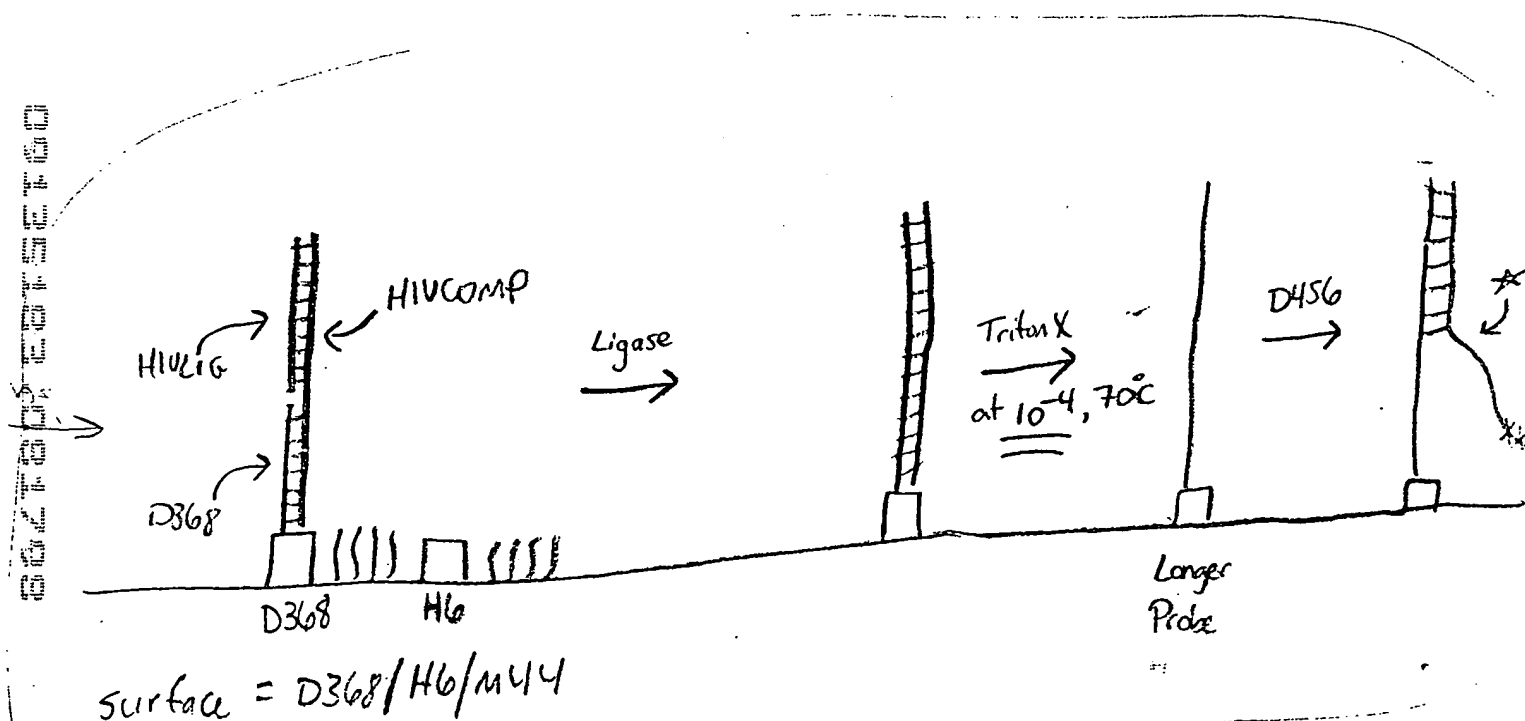 HIVCOMP
HIVLIG
D368
Ligase
Triton X
at 10⁻⁴, 70°C
D456
D368
H6
Longer
Probe
surface = D368/H6/M44